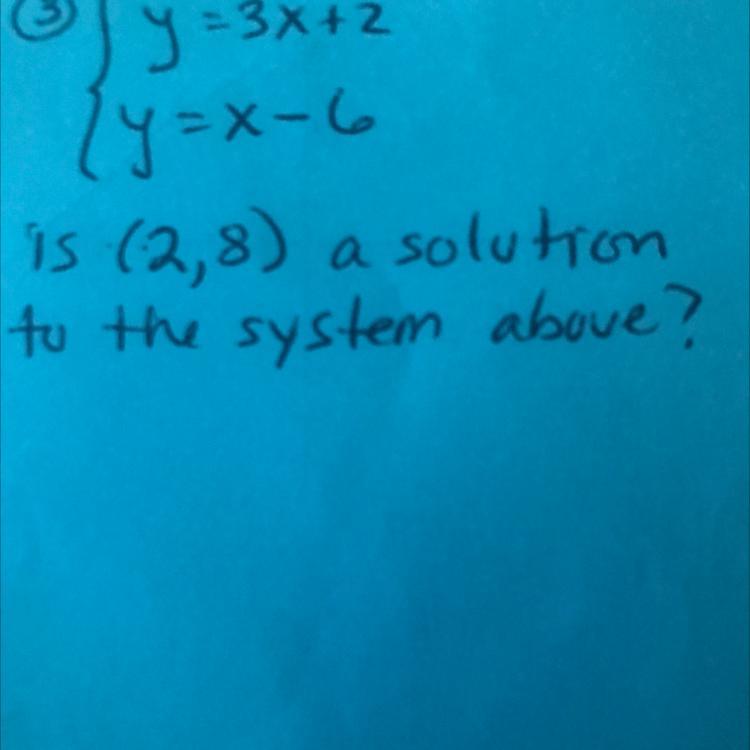 ③ y = 3x + 2
y = x - 6
is (2,8) a solution
to the system above?